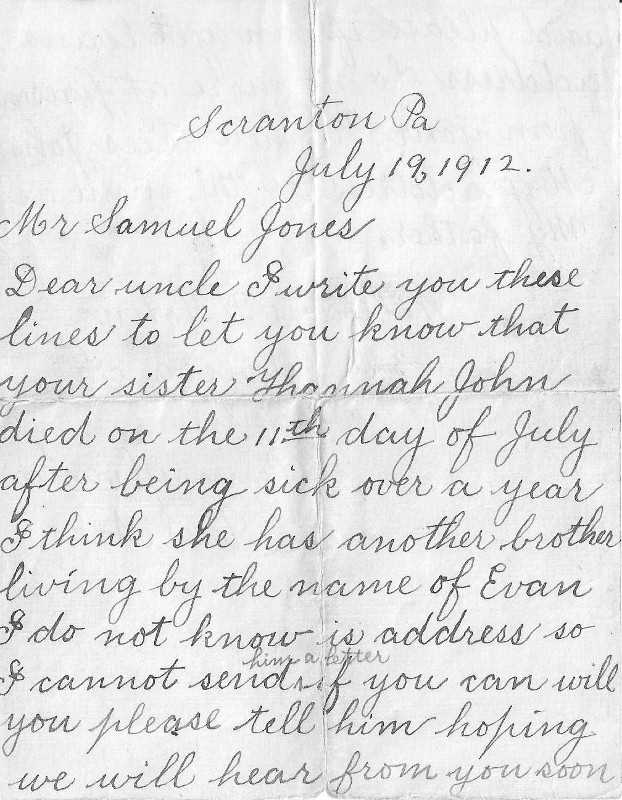 Scranton Pa
July 19, 1912.
Mr Samuel Jones
Dear uncle I write you these
lines to let you know that
your sister Hannah John
died on the 11th day of July
after being sick over a year
I think she has another brother
living by the name of Evan
I do not know is address so
him a letter
I cannot send if you can will
you please tell him hoping
we will hear from you soon